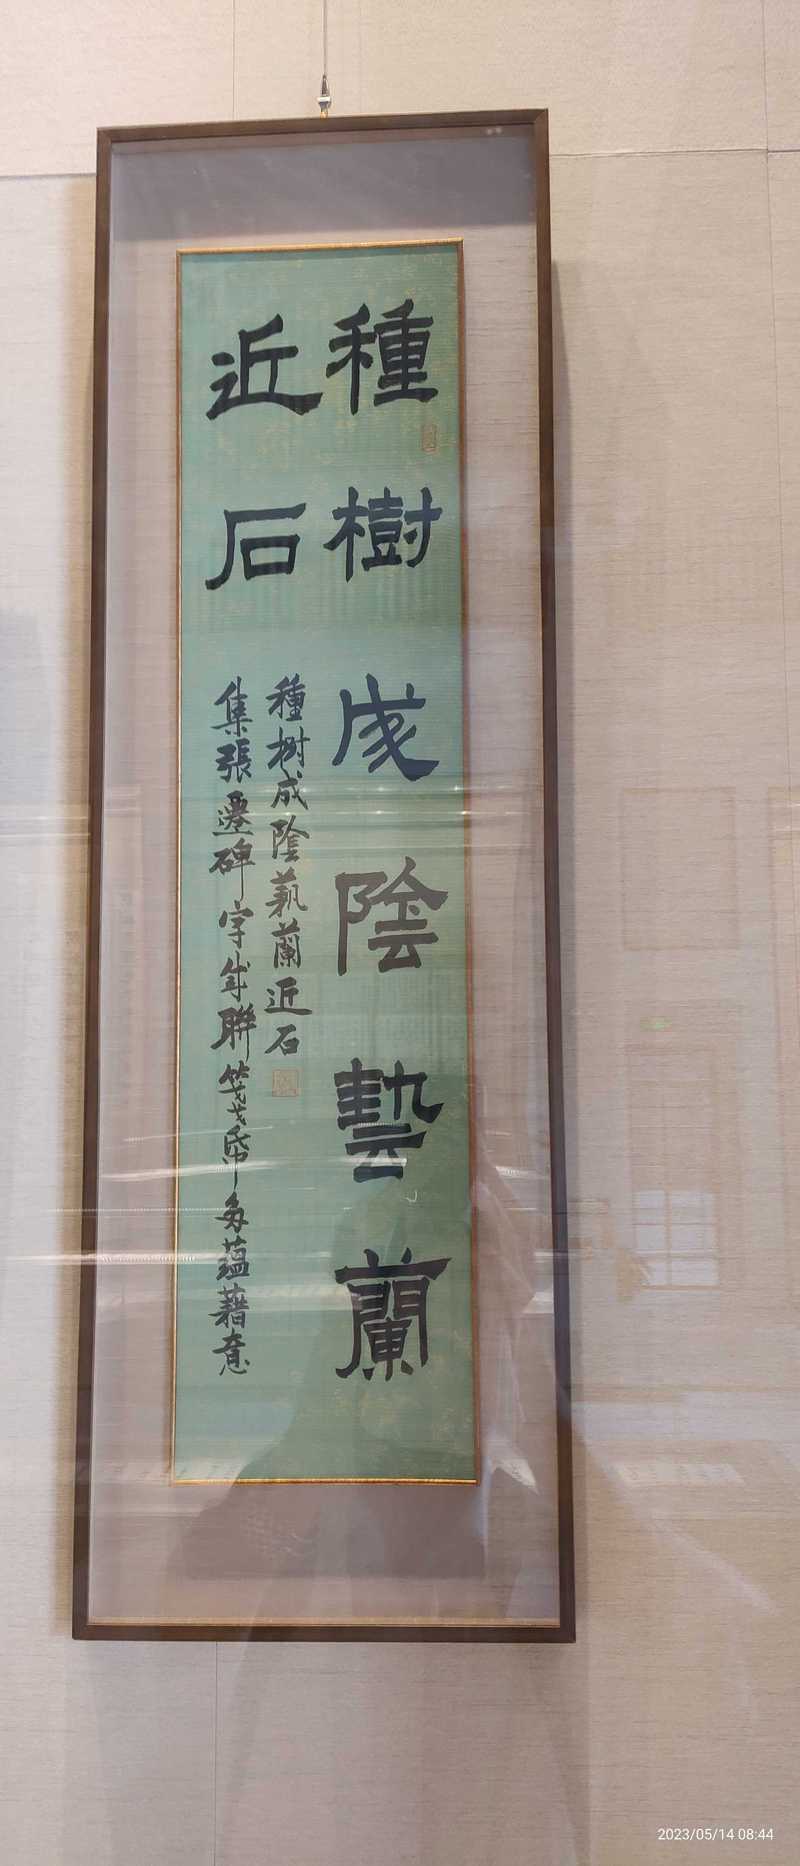 種樹成陰藝蘭
近石
種樹成陰蓺蘭近石
集張遷碑字年聯箋帋多蘊藉意
2023/05/14 08:44